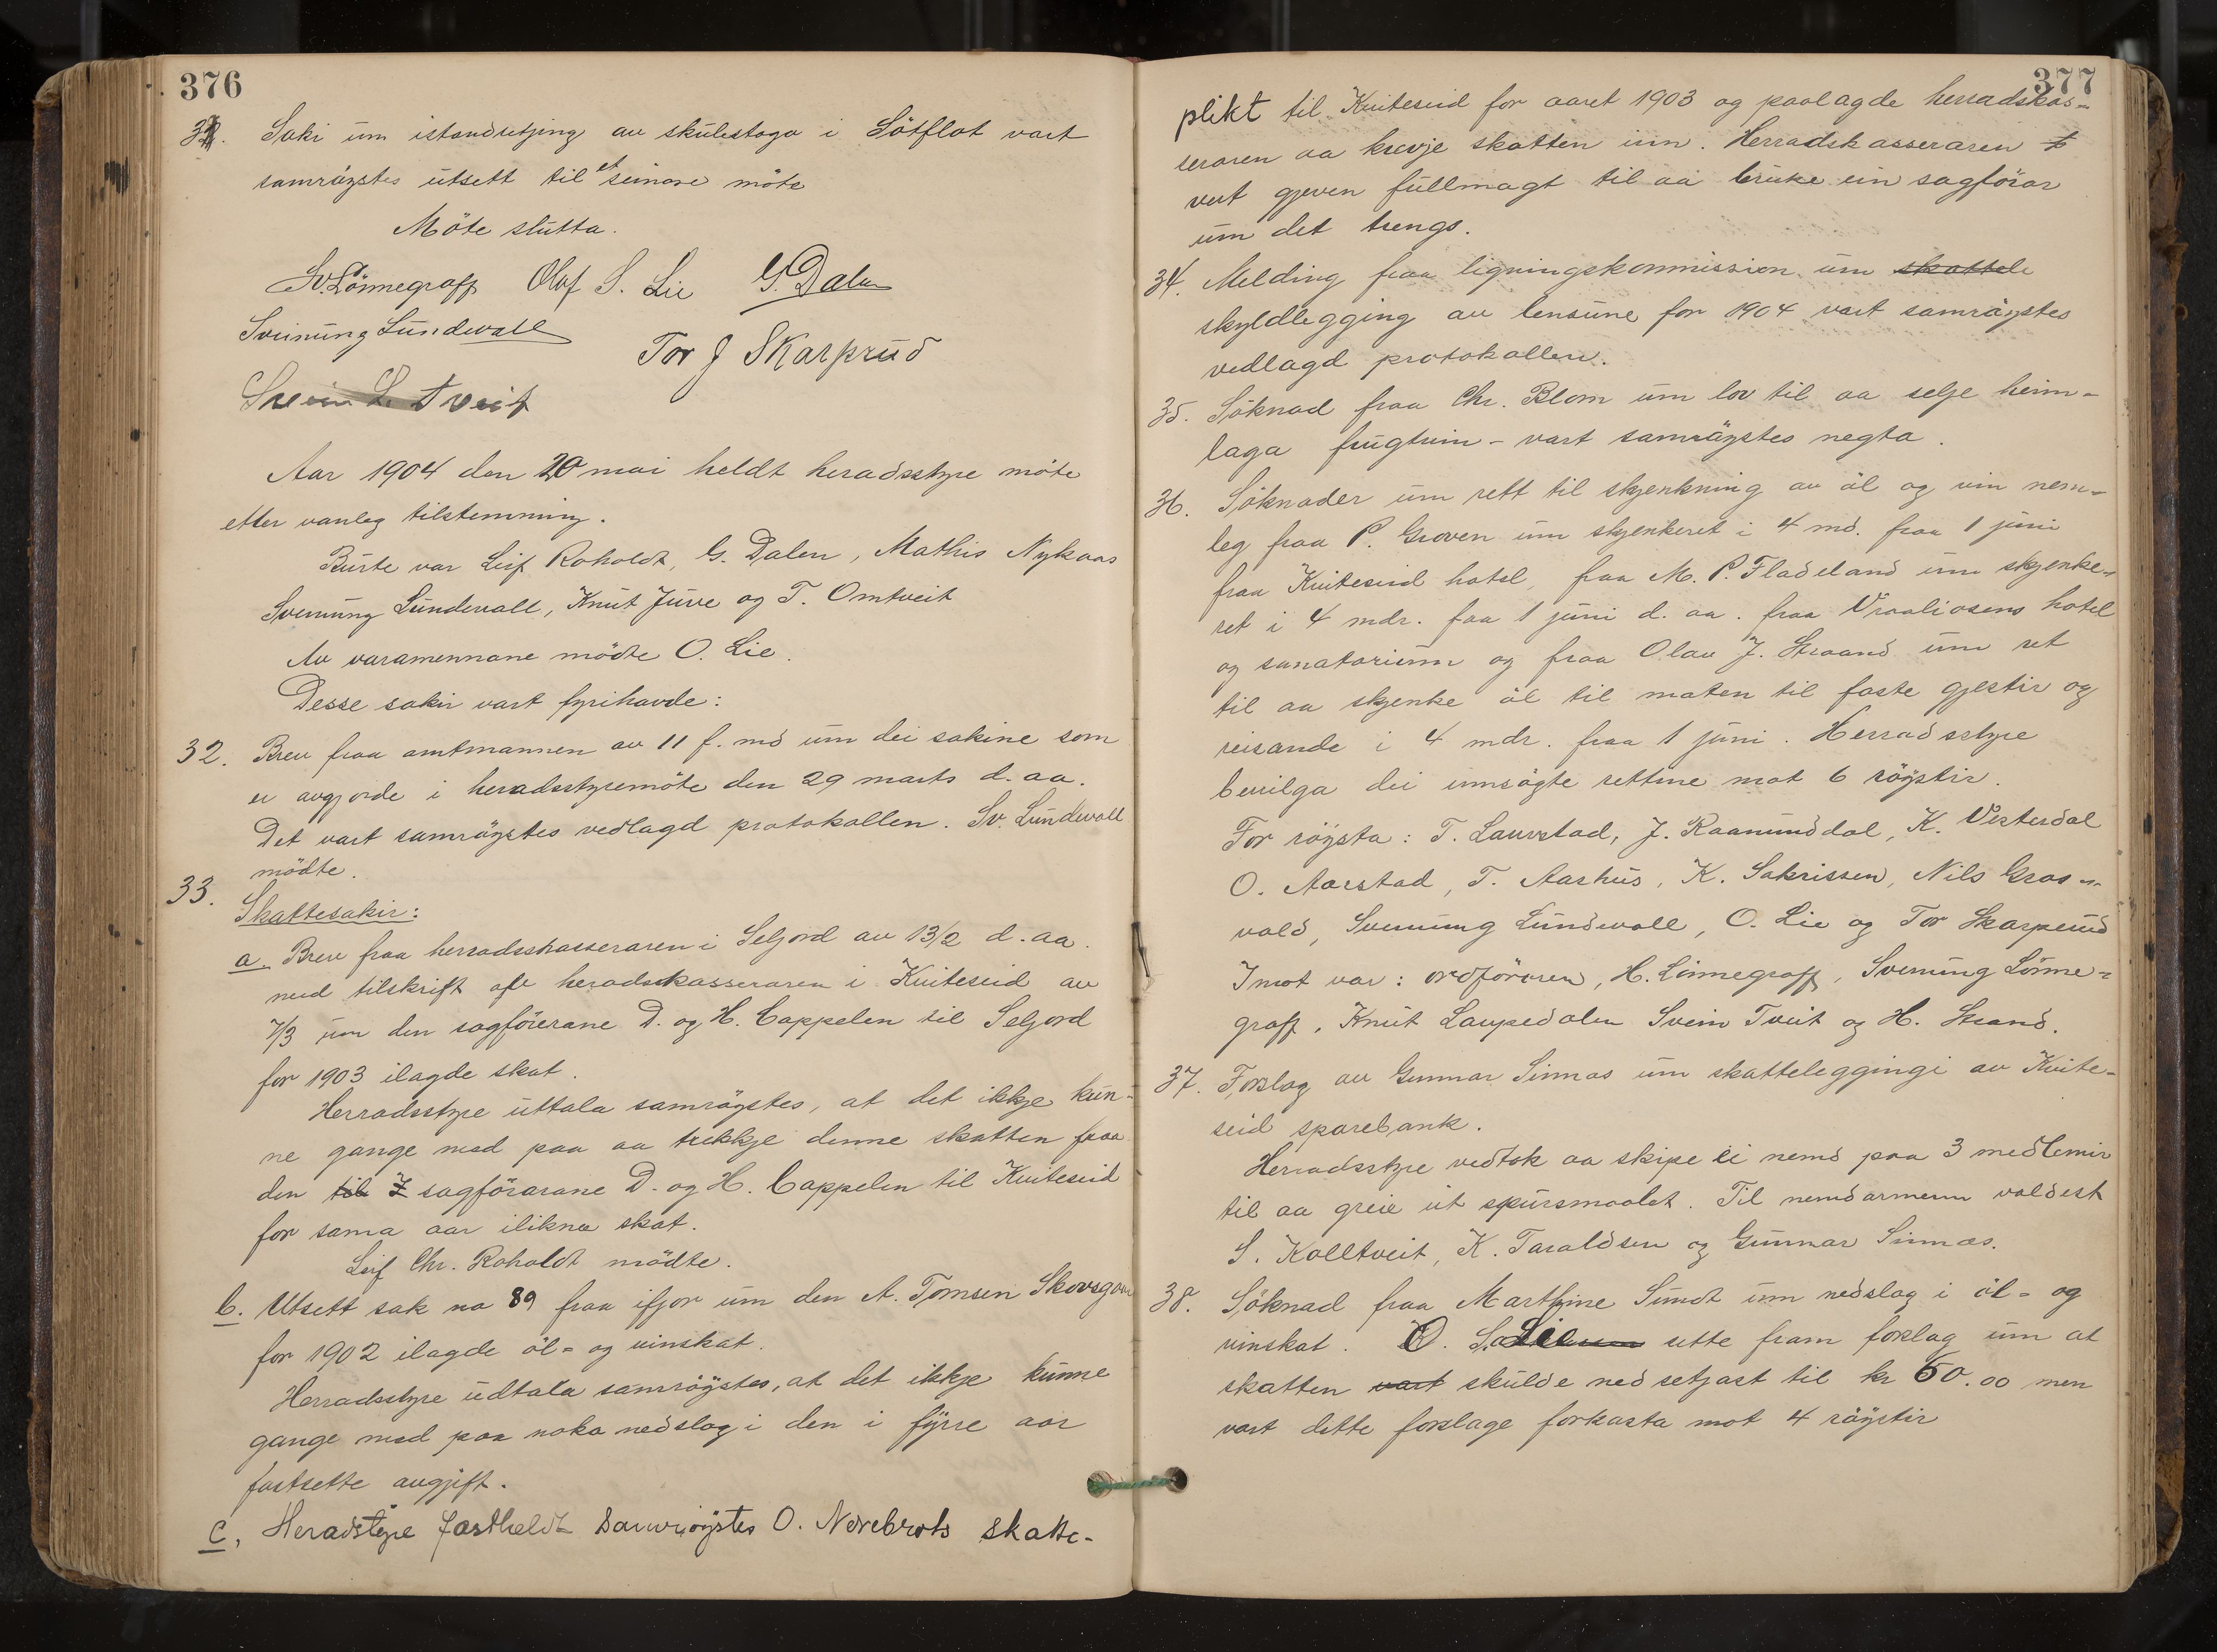 376
31. Saki um istandsetjing av skulestoga i Sötflot vart
samröystes utsett til et seinare möte
Möte slutta.
Sv. Lönnegraff Olaf S. Lie G. Dalen
Sveinung Lundevall
Tor J Skarprud
Svein L. Tveit
Aar 1904 den 20 mai heldt heradsstyre möte
etter vanleg tilstemning.
Burte var Leif Roholdt, G. Dalen, Mathis Nykaas
Svenung Lundevall, Knut Juve og T. Omtveit
Av varamennane mödte O. Lie.
Desse sakir vart fyrihavde:
32. Brev fraa amtmannen av 11 f. md um dei sakine som
er avgjorde i heradsstyremöte den 29 marts d. aa.
Det vart samröystes vedlagd protokollen. Sv. Lundevall
mödte.
33. Skattesakir:
a. Brev fraa herradskasseraren i Seljord av 13/2 d. aa.
med tilskrift av heradskasseraren i Kviteseid av
7/3 um den sagförerane D. og H. Cappelen til Seljord
for 1903 ilagde skat.
Herradsstyre uttala samröystes, at det ikkje kun-
ne gange med paa aa trekkje denne skatten fraa
den til sagförarane D. og H. Cappelen til Kviteseid
for sama aar ilikna skat.
Leif Chr. Roholdt mödte.
b. Utsett sak no 89 fraa ifjor um den A. Tomsen Skovsgaar
for 1902 ilagde öl- og vinskat.
Herradsstyre udtala samröystes, at det ikkje kunne
gange med paa noko nedslag i den i fyrre aar
fastsette avgjift.
c. Heradstyre fastheldt samröystes O. Nerebrots skatte-
377
plikt til Kviteseid for aaret 1903 og paalagde herradskas-
seraren aa krevje skatten inn. Herradskasseraren
vert gjeven fullmagt til aa bruke ein sagförar
um det trengs.
34. Melding fraa ligningskommission um skattele
skyldlegging av lensune for 1904 vart samröystes
vedlagd protokollen.
35. Söknad fraa Chr. Blom um lov til aa selje heim-
laga frugtvin - vart samröystes negta.
36. Söknader um rett til skjenkning av öl og vin nem-
leg fraa P. Groven um skjenkeret i 4 md. fraa 1 juni
fraa Kviteseid hotel, fraa M. P. Fladeland um skjenke-
ret i 4 mdr. faa 1 juni d. aa. fraa Vraaliosens hotel
og sanatorium og fraa Olav J. Straand um ret
til aa skjenke öl til maten til faste gjestir og
reisande i 4 mdr. fraa 1 juni. Herradsstyre
bevilga dei umsögte rettine mot 6 röystir.
For röysta: T. Laurstad, J. Raamunddal, K. Vesterdal
O. Aarstad, T. Aarhus, K. Sakrissen, Nils Gros-
vold, Svenung Lundevall, O. Lie og Tor Skarperud
Imot var: ordföraren, H. Lönnegraff, Svenung Lönne-
graff, Knut Laupedalen Svein Tveit og H. Strand.
37. Forslag av Gunnar Sinnas um skatteleggingi av Kvite-
seid sparebank.
Herradsstyre vedtok aa skipe ei nemd paa 3 medlemir
til aa greie ut spursmaalet. Til nemdarmenn valdest
S. Kolltveit, K. Taraldsen og Gunnar Sinnas.
38. Söknad fraa Marthine Sundt um nedslag i öl- og
vinskat. O. S. Lie sette fram forslag um at
skatten vart skulde nedsetjast til kr 60.00 men
vart dette forslage forkasta mot 4 röystir